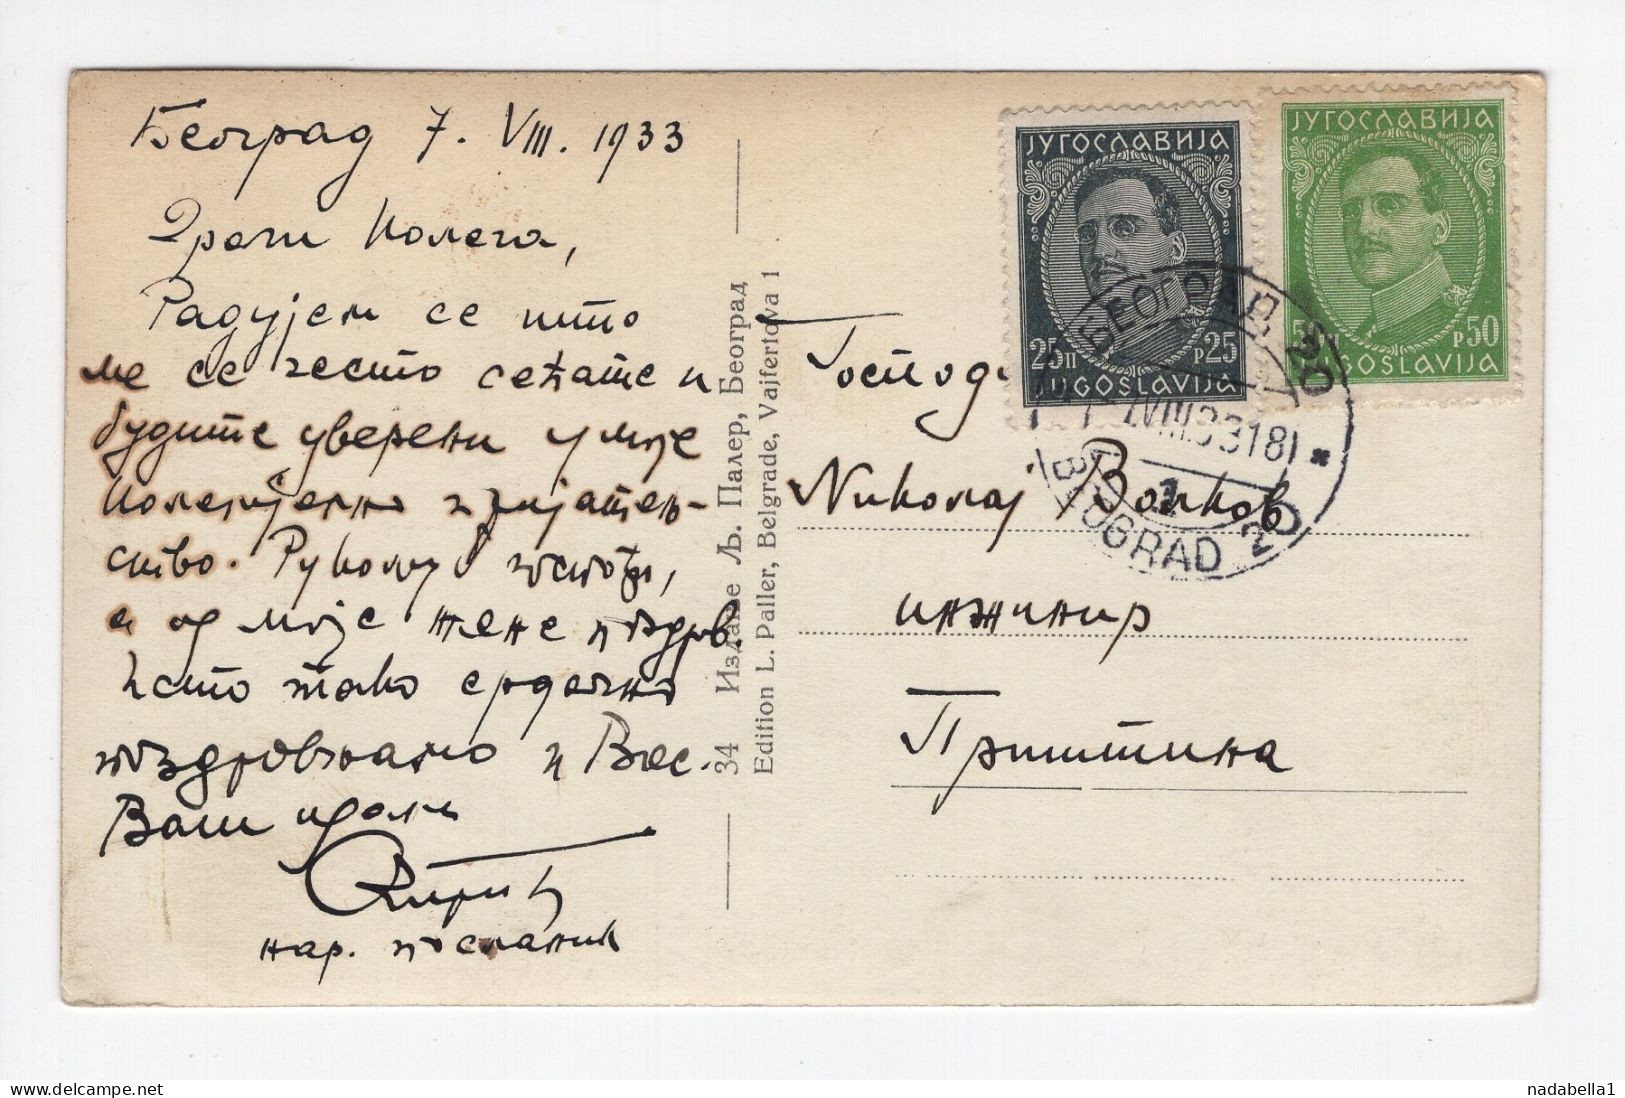 Београд 7. VIII. 1933
Драги Колега,
Радујем се што
ме се често сећате и
будите уверени у моје
колегијално и пријатељ-
ство. Рукољуб госпођи,
а од моје жене поздрав.
Исто тако срдечно
поздрављамо и Вас.
Ваш одани
нар. посланик
34 Издање Љ. Палер, Београд
Edition L. Paller, Belgrade, Vajfertova 1
ЈУГОСЛАВИЈА
25П Р25
JUGOSLAVIJA
ЈУГОСЛАВИЈА
50 Р50
JUGOSLAVIJA
БЕОГРАД 2
VIII.33 18
BEOGRAD 2
Господин
Николај Волков
инжињир
Приштина
nadabella1